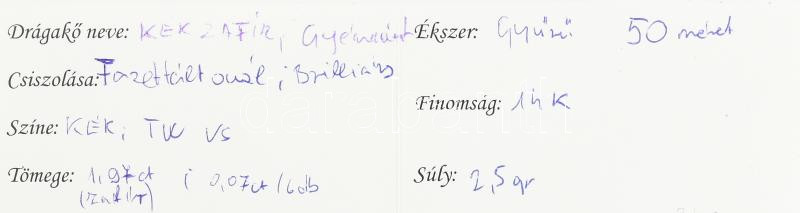 Drágakő neve: KÉK ZAFÍR, Gyémánt
Ékszer: Gyűrű 50 méret
Csiszolása: Fazettált ovál ; Brilliáns
Finomság: 14 K.
Színe: KÉK ; TW VS
Tömege: 1,97ct ; 0,07ct/6db
(zafír)
Súly: 2,5 gr